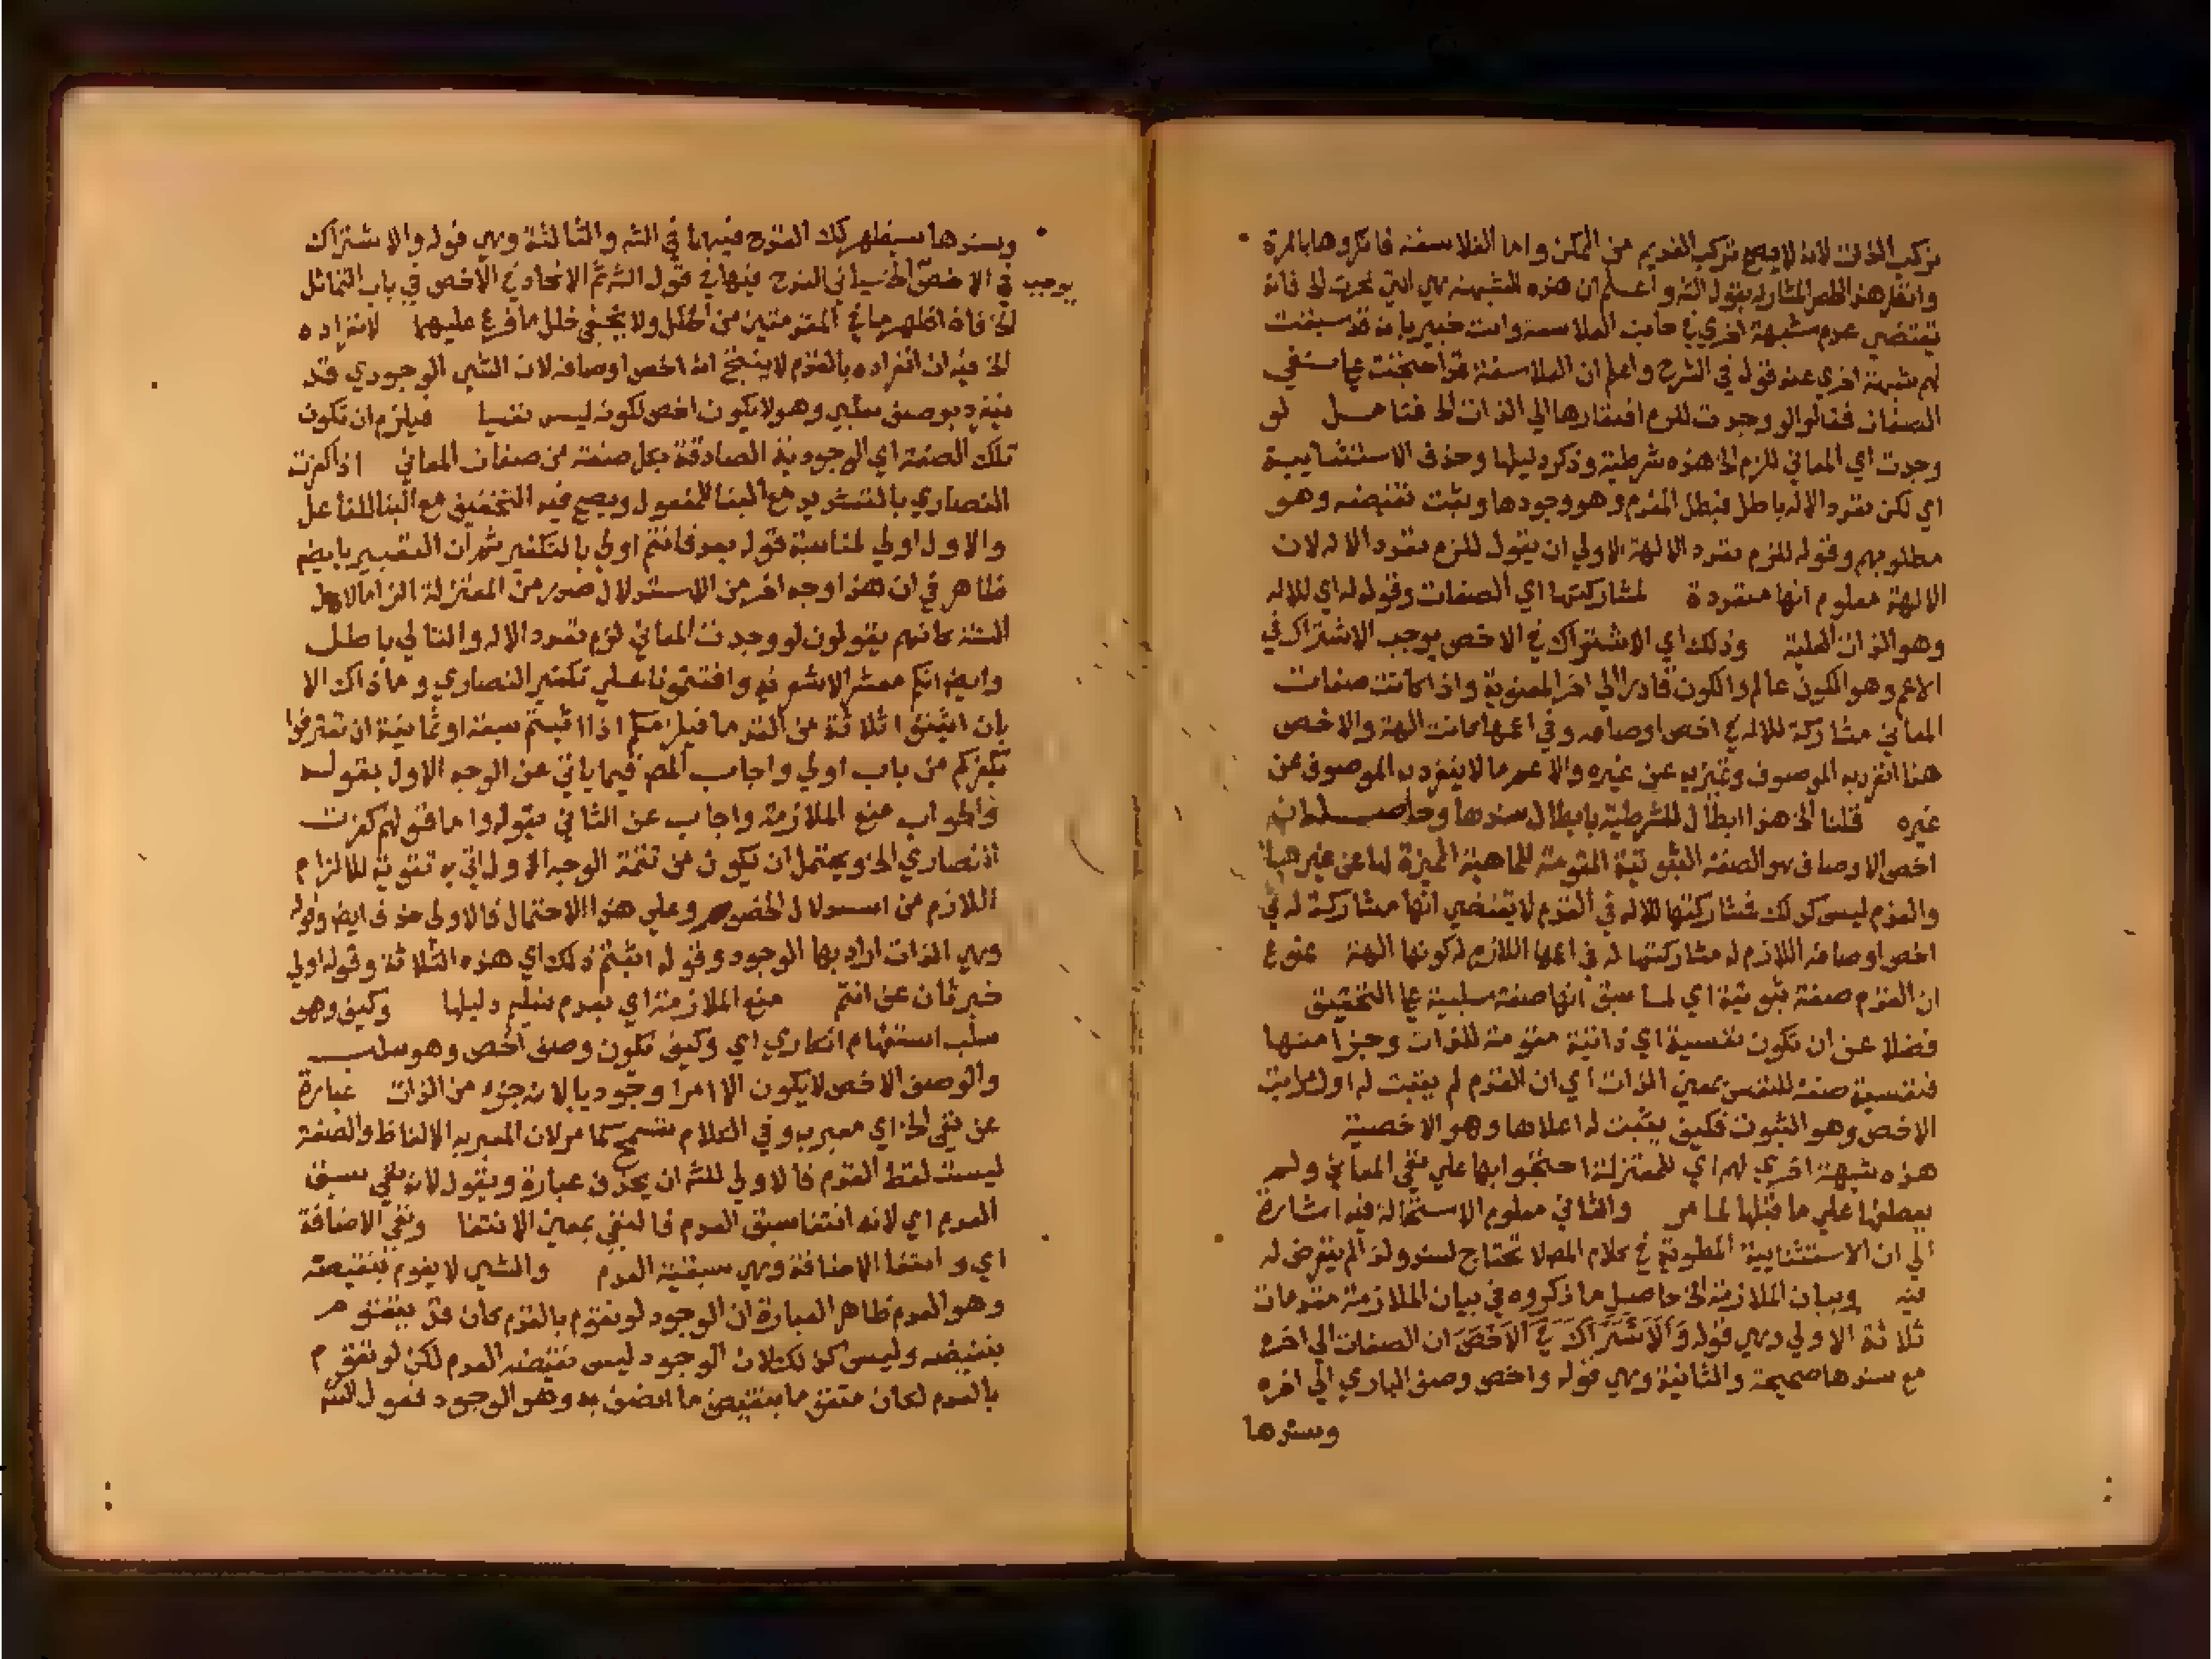 تركب الذات لانه لا يصح تركب القديم من الممكن واما الفلاسفة فانكروها بالمرة
وانظر هذا الحصر المشار له بقول الشه واعلم ان هذه الشبهة هي التي الخ فانه
تقتضي عدم شبهة اخري في جانب الفلاسفة وانت خبير بانه قد سبقت
لهم شبهة اخري عند قوله في الشرح واعلم ان الفلاسفة قد احتجت علي نفي
الصفات فقالوا لو وجدت للزم افتقارها الي الذات الخ فتامل لو
وجدت اي المعاني للزم الخ هذه شرطية وذكر دليلها وحذف الاستثنايية
اي لكن تعدد الاله باطل فبطل المقدم وهو وجودها وثبت نقيضه وهو
مطلوبهم وقوله للزم تعدد الالهة الاولي ان يقول للزم تعدد الاله لان
الالهة معلوم انها متعددة لمشاركتها اي الصفات وقوله له اي للاله
وهو الذات العلية وذلك اي الاشتراك في الاخص يوجب الاشتراك في
الاعم وهو الكون عالما والكون قادرا الي اخر المعنوية واذا كانت صفات
المعاني مشاركة للاله في اخص اوصافه وفي اعمها كانت الهة والاخص
هنا انفرد به الموصوف وتميز به عن غيره والاعم ما لا ينفرد به الموصوف عن
غيره قلنا الخ هذا ابطال للشرطية بابطال سندها وحاصله ان
اخص الاوصاف هو الصفة الثبوتية المقومة للماهية المميزة لها عن غيرها
والقدم ليس كذلك فمشاركتها للاله في القدم لا يقتضي انها مشاركة له في
اخص اوصافه اللازم له مشاركتها له في اعمها اللازم لكونها الهة ممنوع
ان القدم صفة ثبوتية اي لما سبق انها صفة سلبية علي التحقيق
فضلا عن ان تكون نفسية اي ذاتية مقومة للذات وجزا منها
فنفسية صفة للنفس بمعني الذات اي ان القدم لم يثبت له اول مراتب
الاخص وهو الثبوت فكيف يثبت له اعلاها وهو الاخصية
هذه شبهة اخري لهم اي للمعتزلة احتجوا بها علي نفي المعاني ولم
يعطفها علي ما قبلها لما مر والثاني معلوم الاستحالة فيه اشارة
الي ان الاستثنايية المطوية في كلام المص لا تحتاج لسند ولذا لم يتعرض له
فيه وبيان الملازمة الخ حاصل ما ذكروه في بيان الملازمة مقدمات
ثلاثة الاولي وهي قوله والاشتراك في الاخص ان الصفات الي اخره
مع سندها صحيحة والثانية وهي قوله واخص وصف الباري الي اخره
وسندها
وسندها سيظهر لك القدح فيهما في الشه والثالثة وهي قوله والاشتراك
في الاخص الخ سياتي القدح فيها في قول الشه ثم الاتحاد في الاخص في باب التماثل
يوجب
الخ فاذا ظهر ما في المقدمتين من الخلل ولا يخفي خلل ما فرع عليهما لانفراده
الخ فيه ان انفراده بالقدم لا ينتج انه اخص اوصافه لان الشي الوجودي قد
ينفرد بوصف سلبي وهو لا يكون اخص لكونه ليس نفسيا فيلزم ان تكون
تلك الصفة اي الوجودية الصادقة بكل صفة من صفات المعاني اذ اكفرت
النصاري بالتشديد مع البنا للمفعول ويصح فيه التخفيف مع البنا للفاعل
والاول اولي لمناسبة قوله بعد فانتم اولي بالتكفير ثم ان التعبير بايض
ظاهر في ان هذا وجه اخر من الاستدلال صدر من المعتزلة الزاما لاهل
السنة كانهم يقولون لو وجدت المعاني لزم تعدد الاله والتالي باطل
وايض انكم معشر الاشعرية وافقتمونا علي تكفير النصاري وما ذاك الا
بان اثبتوا ثلاثة من القدما فيلزمكم اذا اثبتم سبعة او ثمانية ان تعترفوا
بكفركم من باب اولي واجاب المص فيما ياتي عن الوجه الاول بقوله
والجواب منع الملازمة واجاب عن الثاني بقوله واما قولهم كفرت
النصاري الخ ويحتمل ان يكون من تتمة الوجه الاول اتي به تقوية للالزام
اللازم من استدلال الخصوم وعلي هذا الاحتمال فالاولي حذف ايض وقوله
وهي الذات اراد بها الوجود وقوله اثبتم ذلك اي هذه الثلاثة وقوله اولي
خبر ثان عن انتم منع الملازمة اي بعدم تسليم دليلها وكيف وهو
سلب استفهام انكاري اي وكيف يكون وصف اخص وهو سلب
والوصف الاخص لا يكون الا امرا وجوديا لانه جزء من الذات عبارة
عن نفي الخ اي معبر به وفي الكلام تسمح كما مر لان المعبر به الالفاظ والصفة
ليست لفظ القدم فالاولي للشه ان يحذف عبارة ويقول لانه نفي سبق
العدم اي لانه انتفا سبق العدم فالنفي بمعني الانتفا ونفي الاضافة
اي وانتفا الاضافة وهي سبقية العدم والشي لا يقوم بنقيضه
وهو العدم ظاهر العبارة ان الوجود لو تقوم بالقدم كان قد يتقوم
بنقيضه وليس كذلك لان الوجود ليس نقيضه القدم لكن لو تقوم
بالقدم لكان متقوما بنقيض ما اتصف به وهو الوجود فقول الشه